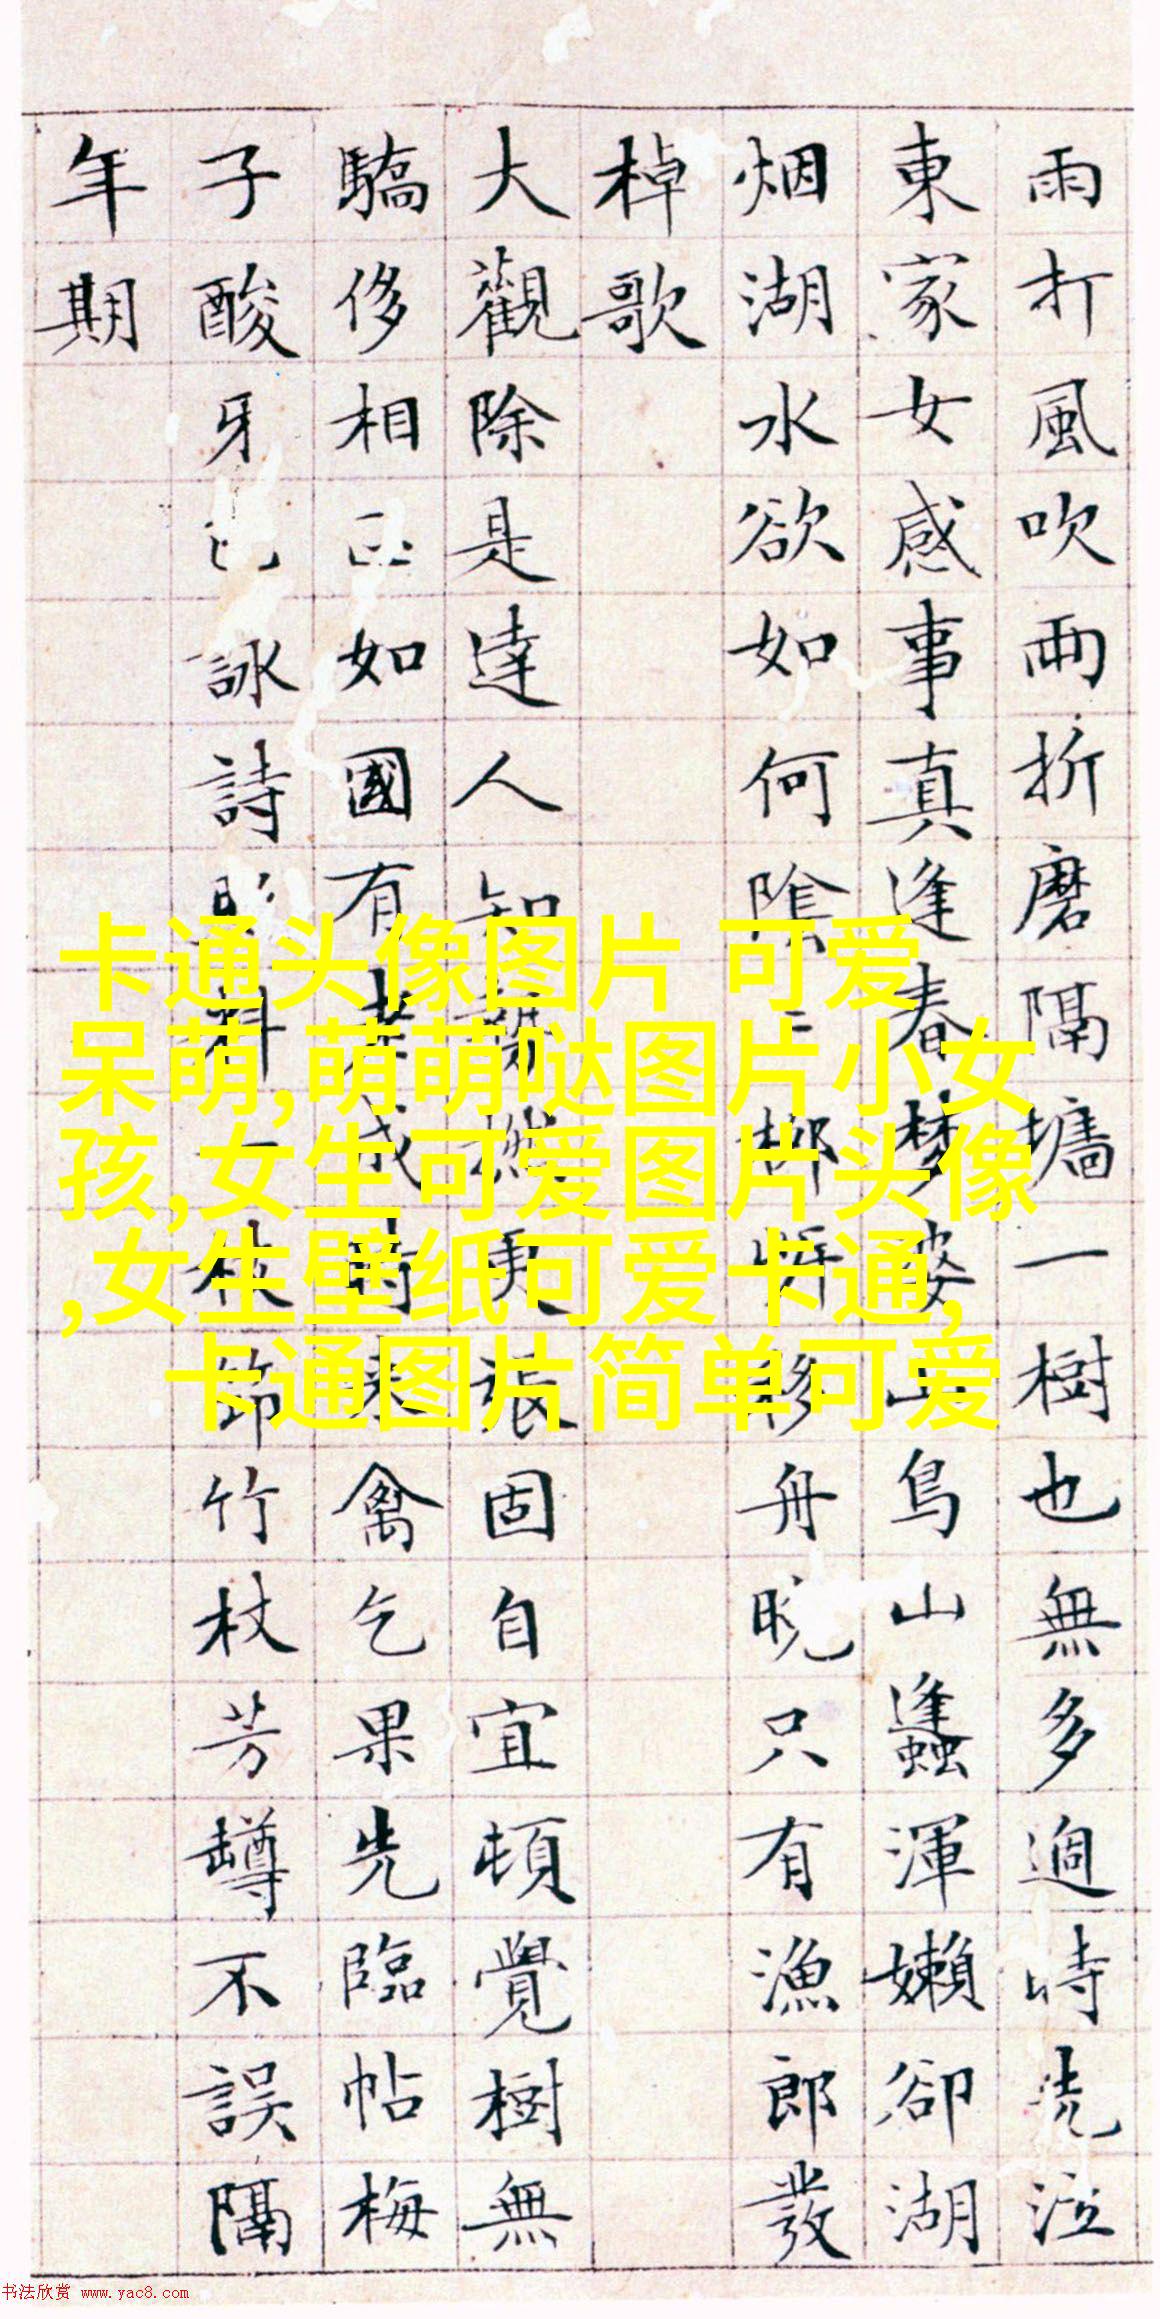 雨打風吹兩折磨隔墻一樹也無多過時泣
東家女感事真逢春夢婆山鳥山蠭渾嬾卻湖
烟湖水欲如何陰移舟晚只有漁郎發
棹歌
大觀除是達人知更張固自宜頓覺樹無
驕侈相如國有成時來禽乞果先臨帖梅
子酸牙詠詩料枝節竹杖芳罇不誤隔
年期
卡通头像图片 可爱
呆萌,萌萌哒图片小女
孩,女生可爱图片头像
,女生壁纸可爱卡通,
卡通图片简单可爱
书法欣赏 www.yac8.com